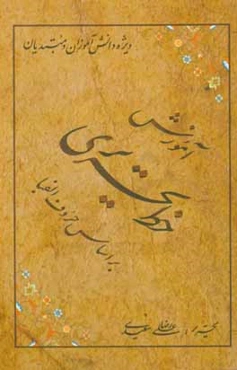 ویژه دانش‌آموزان و مبتدیان
آموزش
خط تحریری
بر اساس حروف الفبا